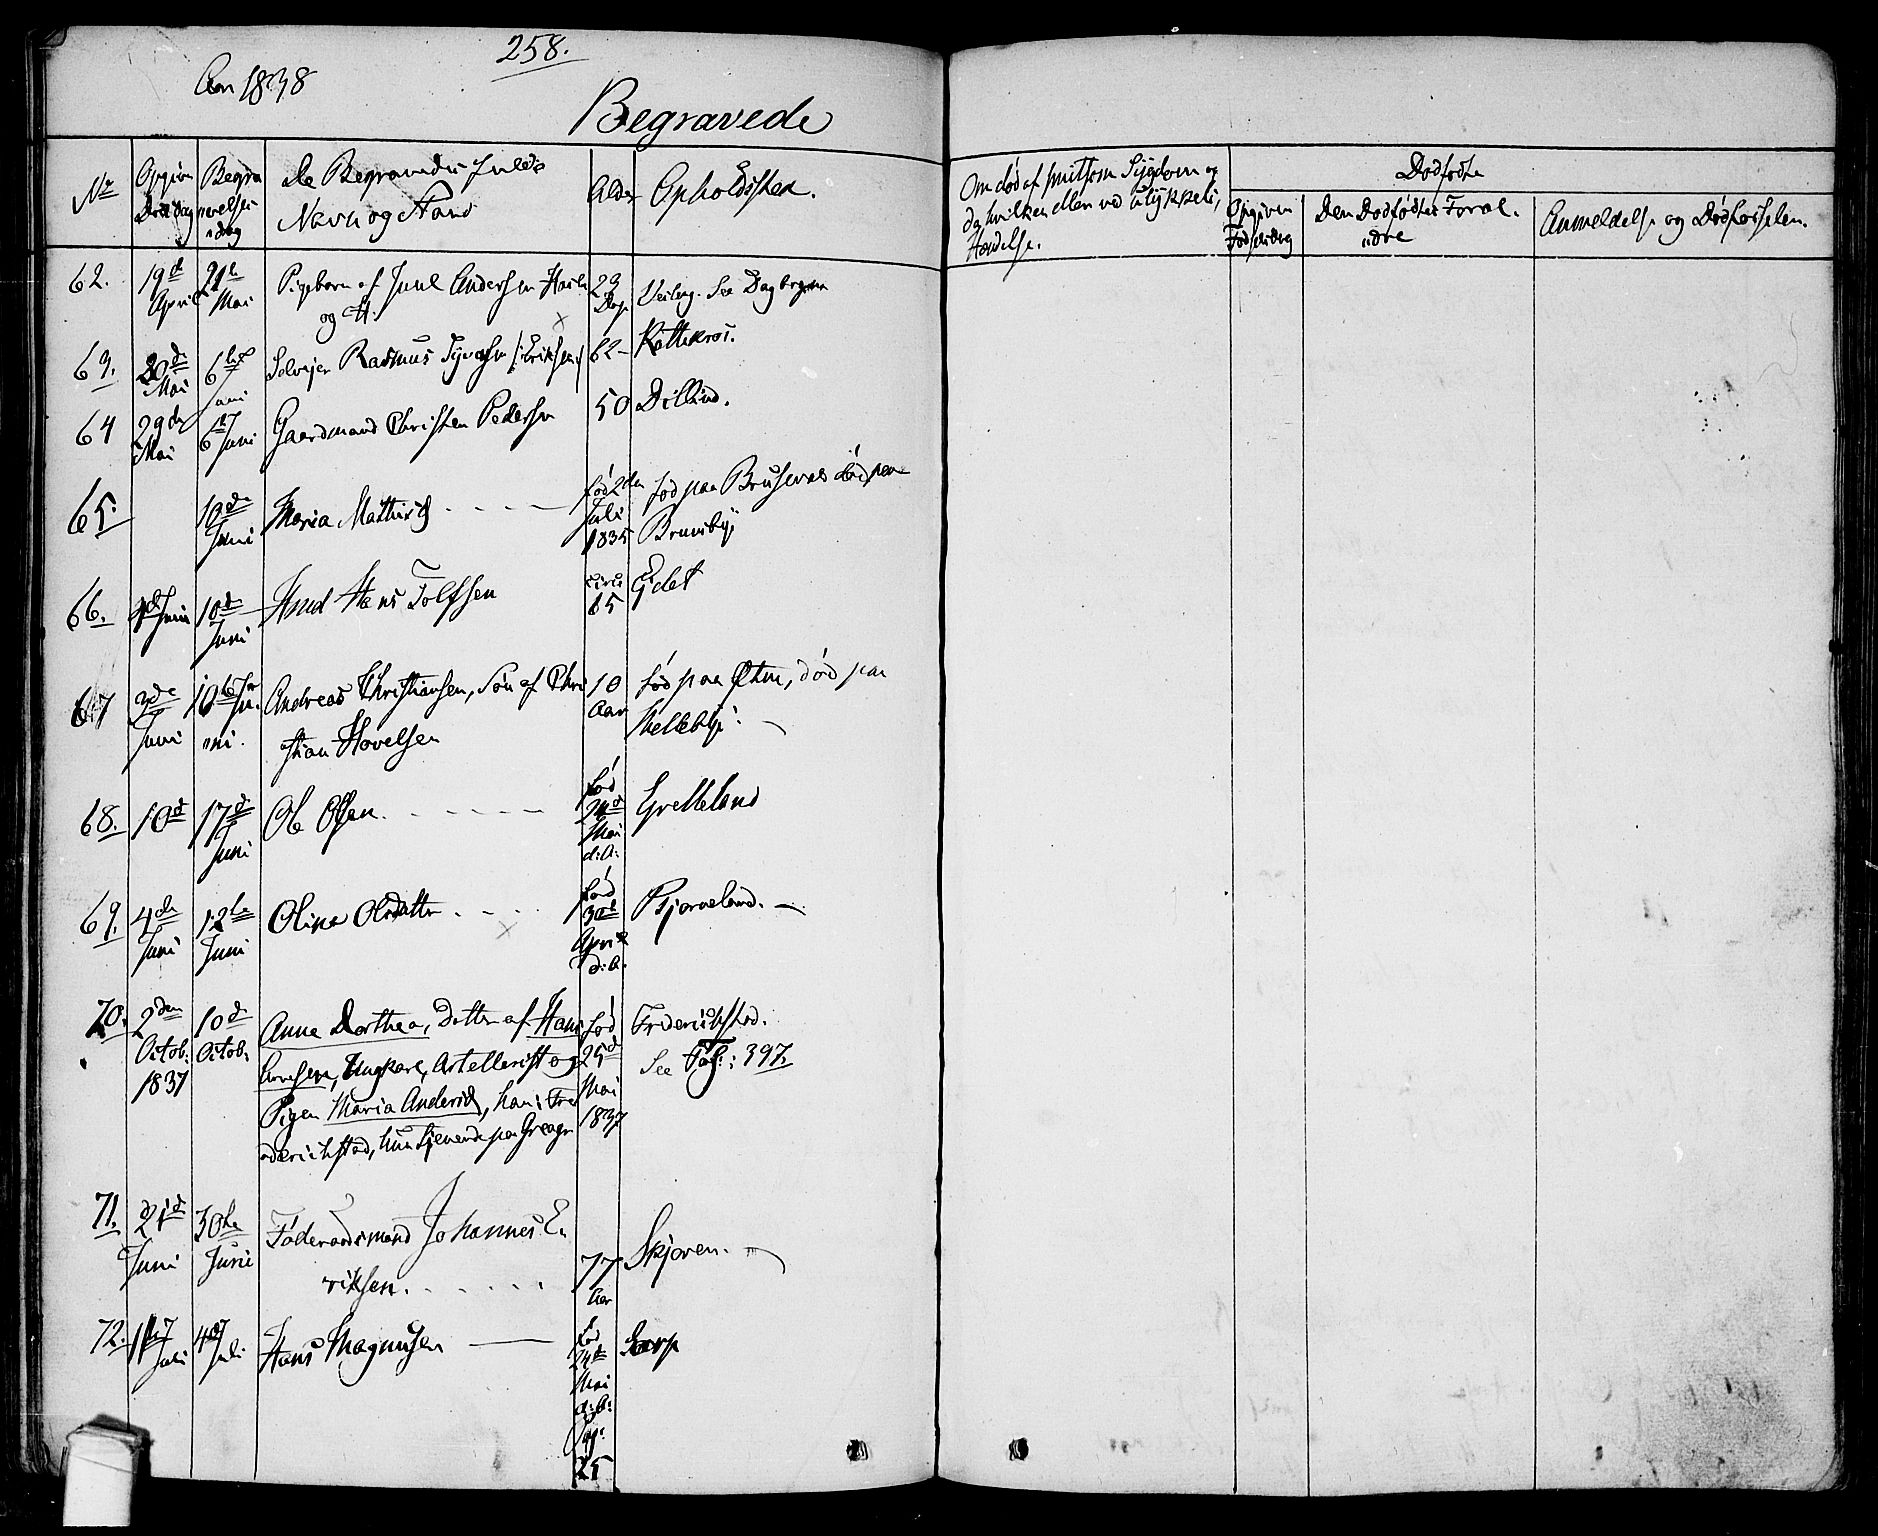 258.
Ao 1838
Begravede
No
Opgiven Dødsdag
Begravelsesdag
De Begravedes fulde
Navn og Stand
Alder
Opholdssted.
Om død af smitsom Sygdom og
da hvilken eller ved ulykkelig
Hændelse.
Dødfødte
Opgiven
Fødselsdag
Den Dødfødtes Foræl-
dre
Anmeldelse og Dødførselen.
62. 19de April Mai Pigebarn af Juul Andersen
og H. Dage See Dagbogen
63. 30de Mai 6te Juni Selveier Rasmus Syversen /: Eriksen 62 -
64 29de Mai 6te Juni Gaardmand Christen Pedersen 50 Dillind.
65. 10de Juni Maria Mathisd - - - - født 2den Juli 1835 fød paa Brusevold død paa
Brunsby
66. Juni 10de Juni Knud Hans Tolfsen circa 65 Eidet
67 2de Juni 10de Ju-
ni. Andreas Christiansen, Søn af Chri
stian Hovelsen 10 Aar fød paa Østm, død paa
Kelleby. -
68. 10de 17de Juni Ole Olsen. - - - - - fød Mai d: A: Grelleland
69. 4de Juni 12te Juni Olina Olsdatter - - - fød 30te April d: A. Bjørneland. -
70. 2den Octob. 1837 10de Octob. Anne Dorthea, Datter af Hans
Ungkarl, Artellerist og
Pigen Maria Andersd, han i Fre
derichstad, hun tjenende paa
fød 25de Mai 1837 Friderichstad.
See Pag: 397.
71. 21de Juni 30te Juni Føderaadsmand Johannes E-
riksen. - - - - - 77 Aar Skjøren. -
72. Juli Juli Hans Magnusen - fød 24de Mai d: A: Sorp